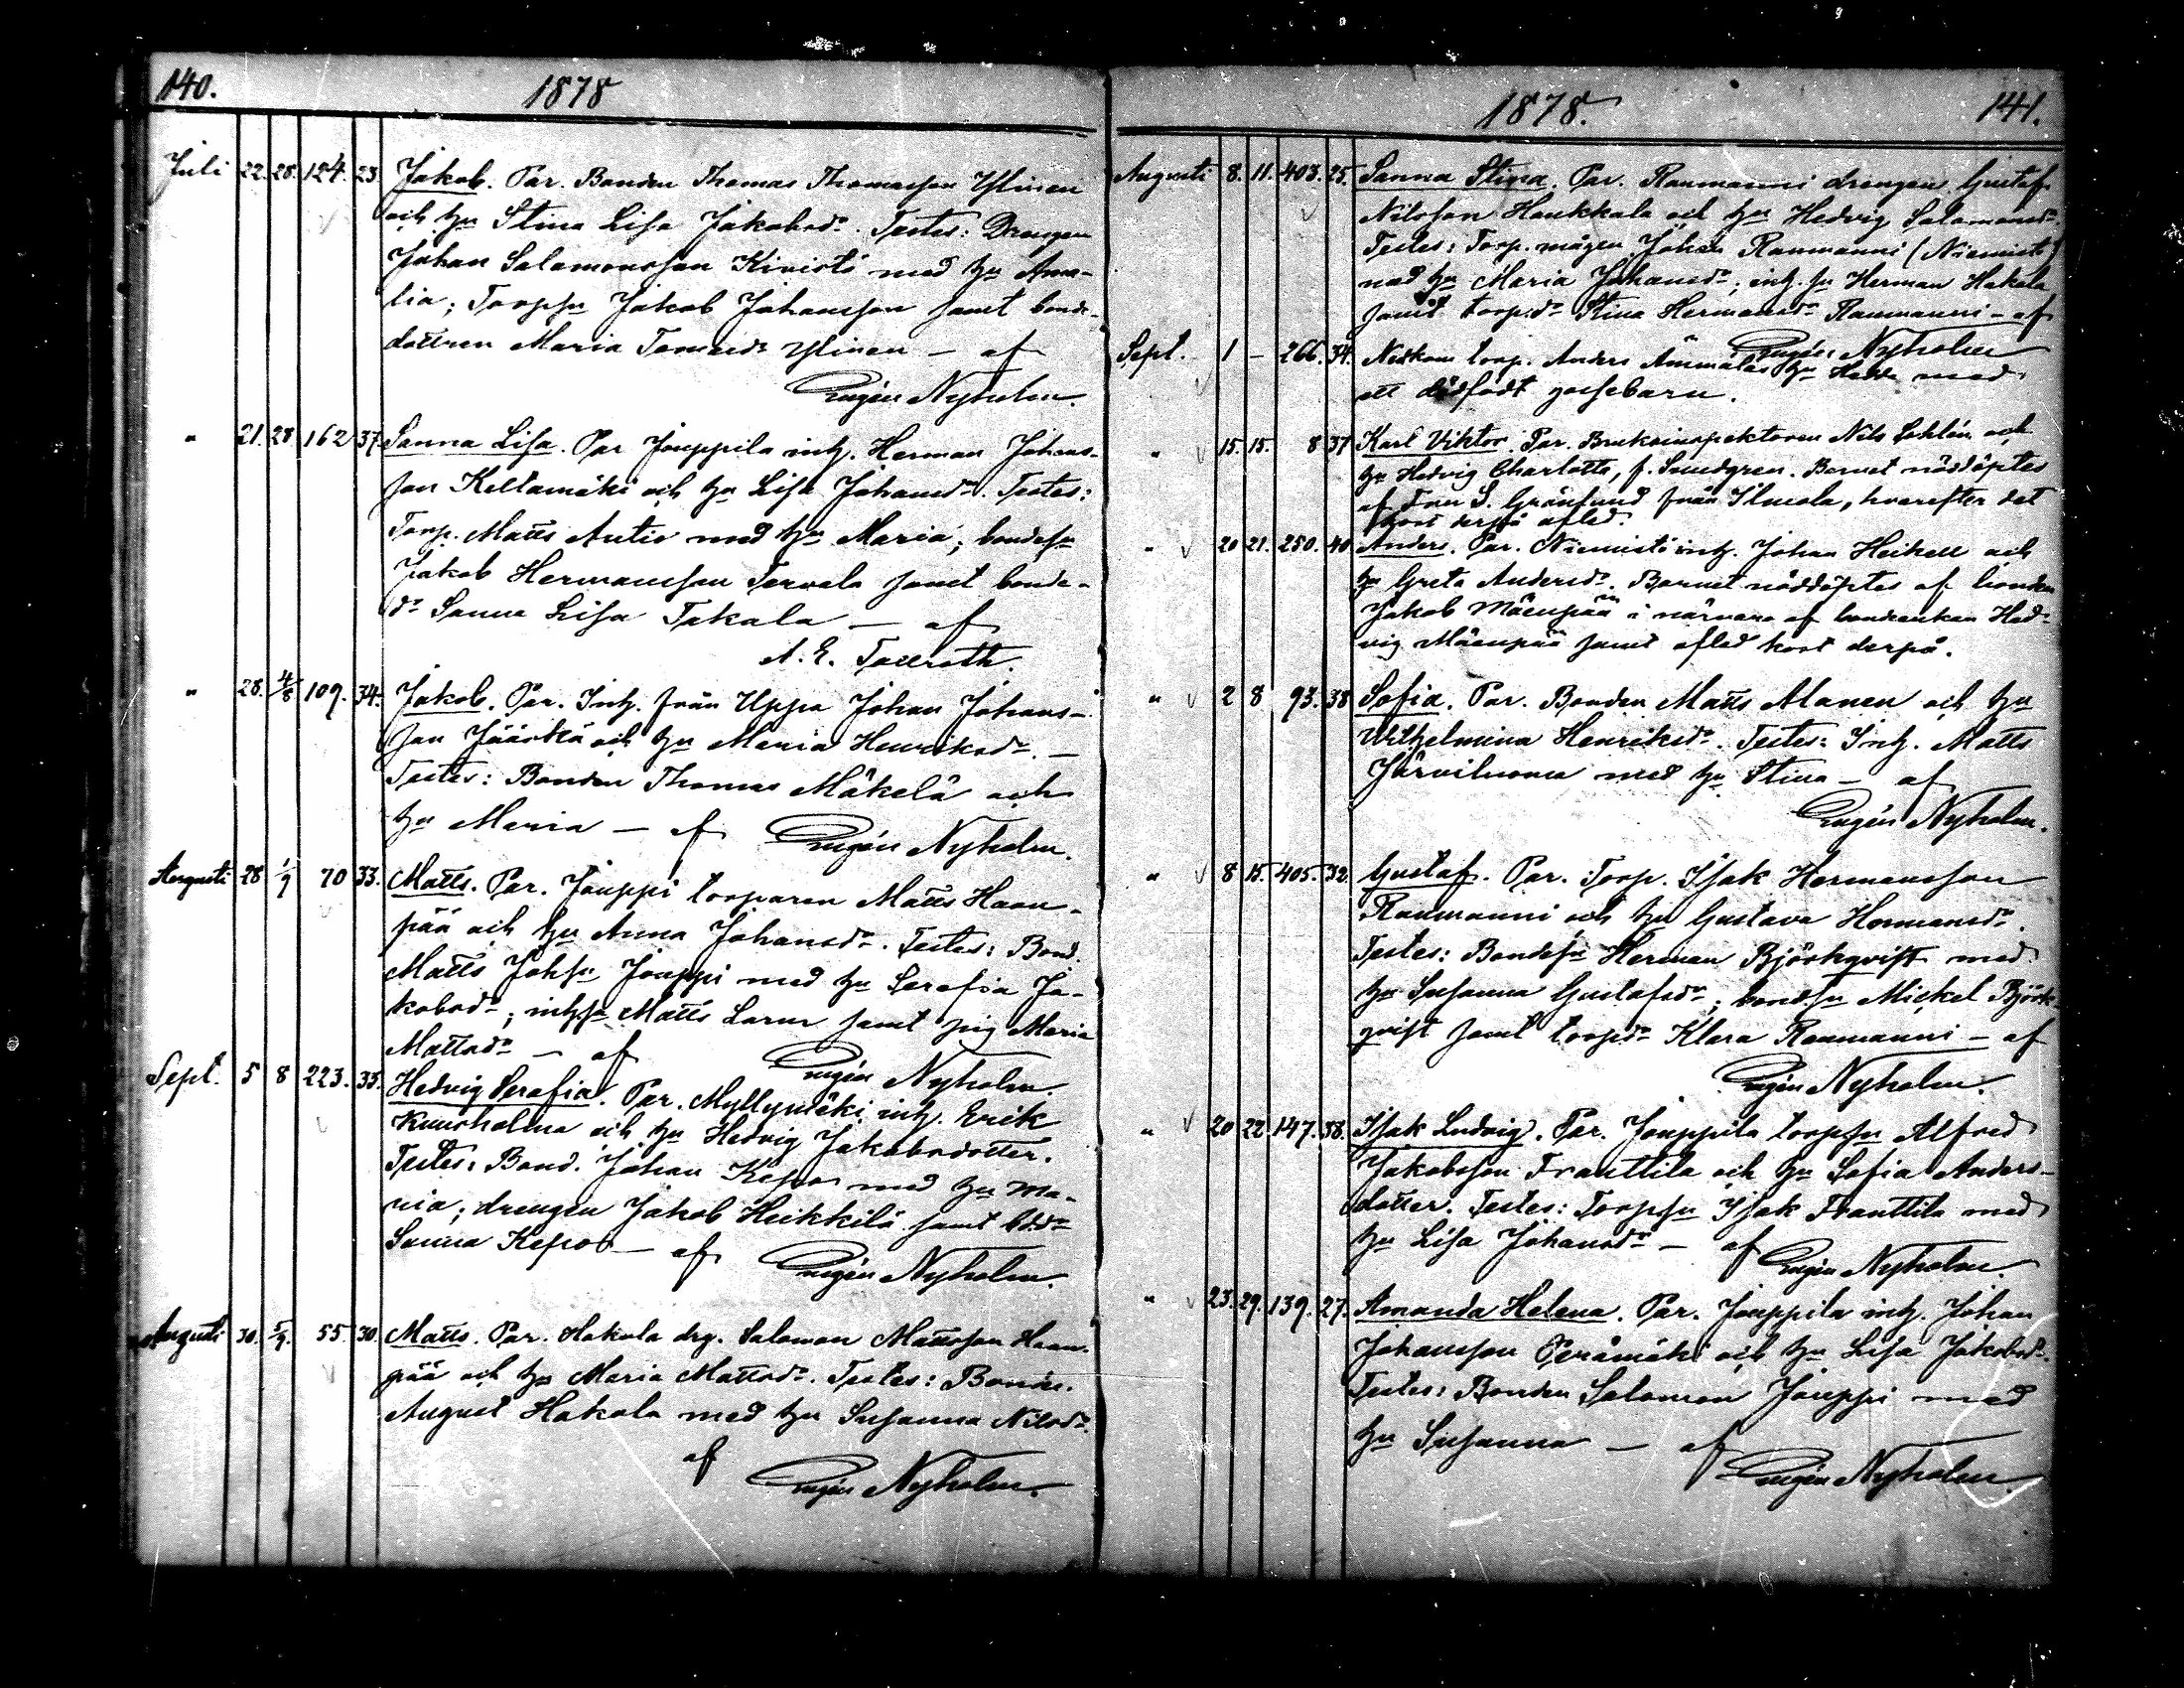 140. 1878
Juli 22. 28. 124. 23. Jakob. Par. Bonden Thomas Thomasson Ylinen
och hu Stina Lisa Jakobsdr. Testes: Drengen
Johan Salamonsson Kivistö med hu Ama-
lia; Torpsn Jakob Johansson samt bonde-
dottren Maria Tomasdr Ylinen – af
Eugén Nyholm.
" 21. 28. 162 37. Sanna Lisa. Par Jouppila inh. Herman Johans-
son Keltamäki och hu Lisa Johansdr. Testes:
Torp. Matts Autio med hu Maria; bondesn
Jakob Hermansson Tervala samt bonde-
dr Sanna Lisa Takala – af
A. E. Taxroth.
" 28. 4/8 109. 34. Jakob. Par. Inh. från Uppo Johan Johans-
son Jääskä och hu Maria Henriksdr. –
Testes: Bonden Thomas Mäkelä och
hu Maria – af Eugén Nyholm.
Augusti 28 1/9 70 33. Matts. Par. Jouppi torparen Matts Haan-
pää och hu Anna Johansdr. Testes: Bond.
Matts Johsn Jouppi med hu Serafia Ja-
kobsdr; inhsn Matts Larm samt pig Maria
Mattsdr – af Eugén Nyholm.
Sept. 5 8 223. 35. Hedvig Serafia. Par. Myllymäki inh. Erik
hu Hedvig Jakobsdotter.
Testes: Bond. Johan Kepo med hu Ma-
ria; drengen Jakob Heikkilä samt bdr
Sanna Kepo – af Eugén Nyholm.
Augusti 30. 5/9. 55. 30. Matts. Par. Hakola drg. Salomon Mattsson Haan-
pää och hu Maria Mattsdr. Testes: Bonden
August Hakola med hu Susanna Nilsdr.
af Eugén Nyholm.
1878. 141.
Augusti 8. 11. 403. 25. Sanna Stina. Par. Raumanni drengen Gustaf
Nilsson Haukkala och hu Hedvig Salomonsdr
Testes: Torp.mågen Johan Raumanni (Niemistö)
med hu Maria Johansdr; inh. sn Herman Hakala
samt torp.dr Stina Hermansdr Raumanni – af
Eugén Nyholm
Sept. 1 – 266. 34. Nedkom torp. Anders Ämmäläs hu Hedda med
ett dödfödt gossebarn.
" 15. 15. 8 37 Karl Viktor. Par. Bruksinspektoren Nils och
hu Hedvig Charlotta, f. Sundgren. Barnet nöddöptes
af Fru S. Gränlund från Ilmola, hvarefter det
kort derpå afled.
" 20 21. 250. 40 Anders. Par. Niemistö inh. Johan Heikell och
hu Greta Andersdr. Barnet nöddöptes af bonden
Jakob Mäenpää i närvaro af bondeenkan Hed-
vig Mäenpää samt afled kort derpå.
" 2 8 93. 38 Sofia. Par. Bonden Matts Alanen och hu
Wilhelmina Henriksdr. Testes: Inh. Matts
Järviluoma med hu Stina – af
Eugén Nyholm.
" 8 15. 405. 32. Gustaf. Par. Torp. Isak Hermansson
Raumanni och hu Gustava Hermansdr.
Testes: Bondesn Herman Björkqvist med
hu Susanna Gustafsdr; bondsn Mickel Björk-
qvist samt torpdr Klara Raumanni – af
Eugén Nyholm.
" 20 22. 147. 38. Isak Ludvig. Par. Jouppila torpsn Alfred
Jakobsson Franttila och hu Sofia Anders-
dotter. Testes: Torpsn Isak Franttila med
hu Lisa Johansdr – af Eugén Nyholm.
" 23. 29. 139. 27. Amanda Helena. Par. Jouppila inh. Johan
Johansson Perämäki och hu Lisa Jakobsdr.
Testes: Bonden Salomon Jouppi med
hu Susanna – af
Eugén Nyholm.